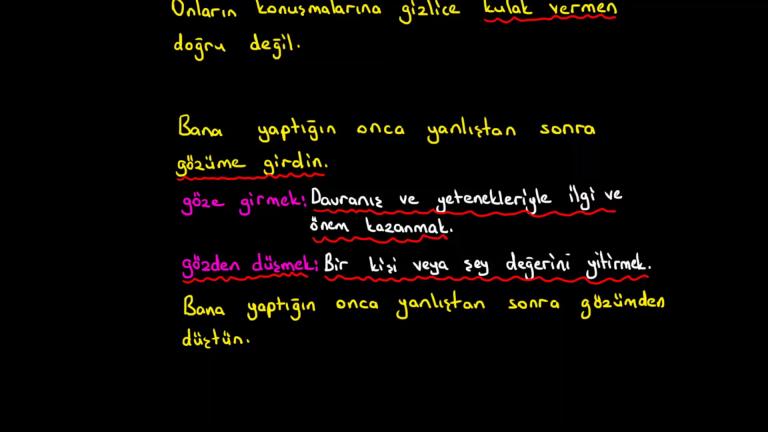 Onların konuşmalarına gizlice kulak vermen
doğru değil.
Bana yaptığın onca yanlıştan sonra
gözüme girdin.
göze girmek: Davranış ve yetenekleriyle ilgi ve
önem kazanmak.
gözden düşmek: Bir kişi veya şey değerini yitirmek.
Bana yaptığın onca yanlıştan sonra gözümden
düştün.